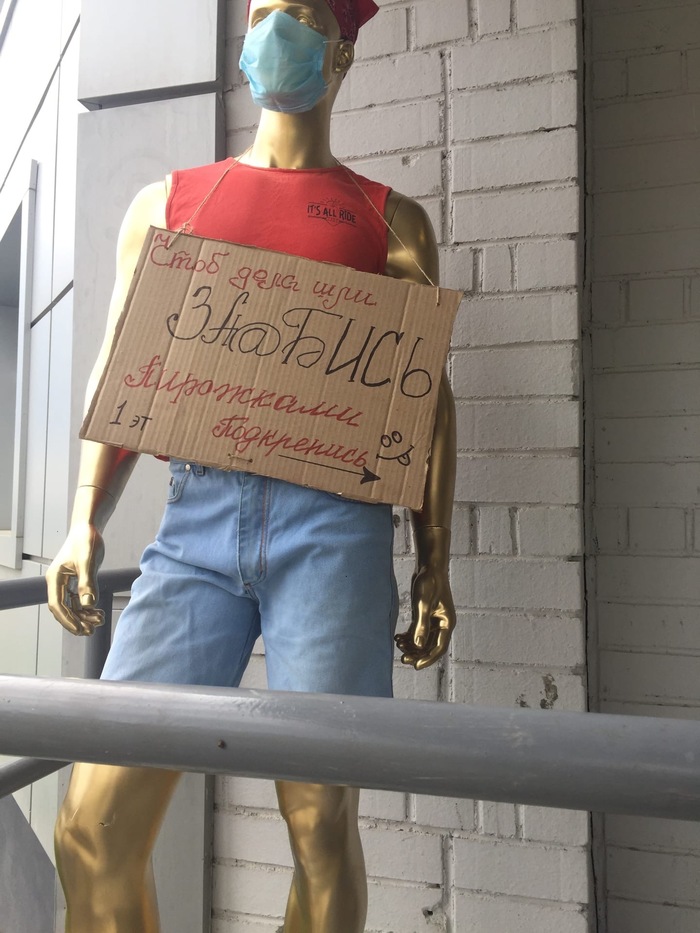 IT'S ALL RIDE
Чтоб дела шли
ЗА@БИСЬ
Пирожками
1 эт Подкрепись